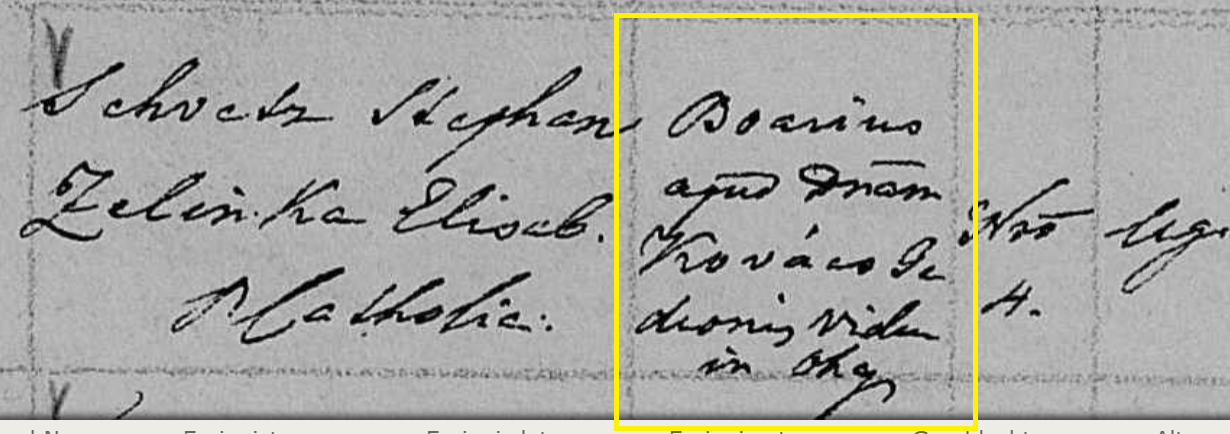 Schvetz Stephan
Zelinka Elisab.
R. Catholic:
Boarius
apud Dnam
Kovács Ge
deonis vidu
in Ohaj
Nro
4.